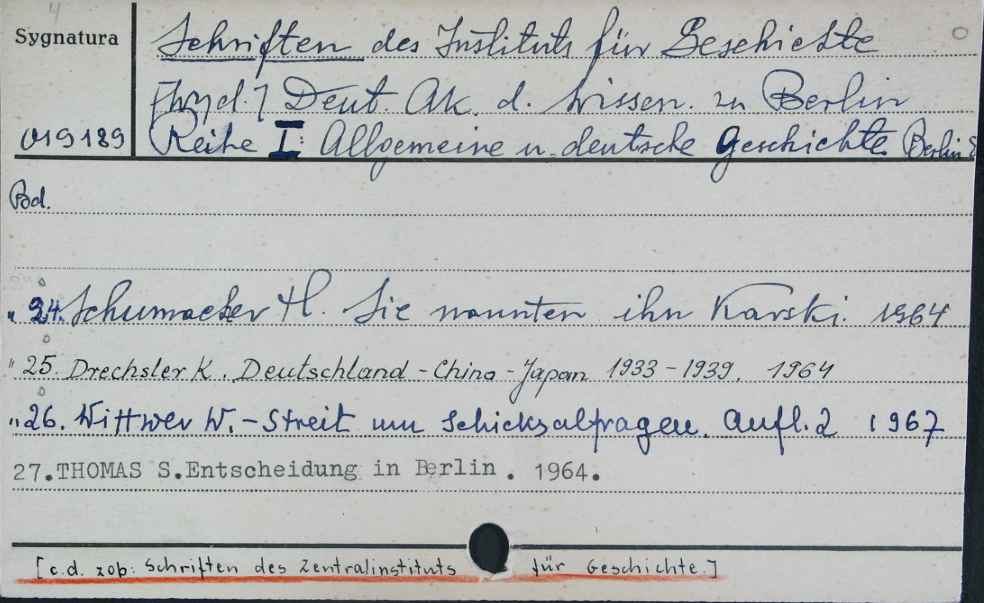 4
Sygnatura
Schriften des Instituts für Geschichte
[wyd.] Deut. Ak. d. Wissen. zu Berlin
019189
Reihe I: Allgemeine u. deutsche Geschichte Berlin
Bd.
" 24. Schumacher H. Sie nannten ihn Karski. 1964
" 25. Drechsler K. Deutschland - China - Japan 1933-1939. 1964
" 26. Wittwer W. - Streit um Schicksalfragen. Aufl. 2 1967
27. THOMAS S. Entscheidung in Berlin . 1964.
[c.d. zob: Schriften des Zentralinstituts für Geschichte.]